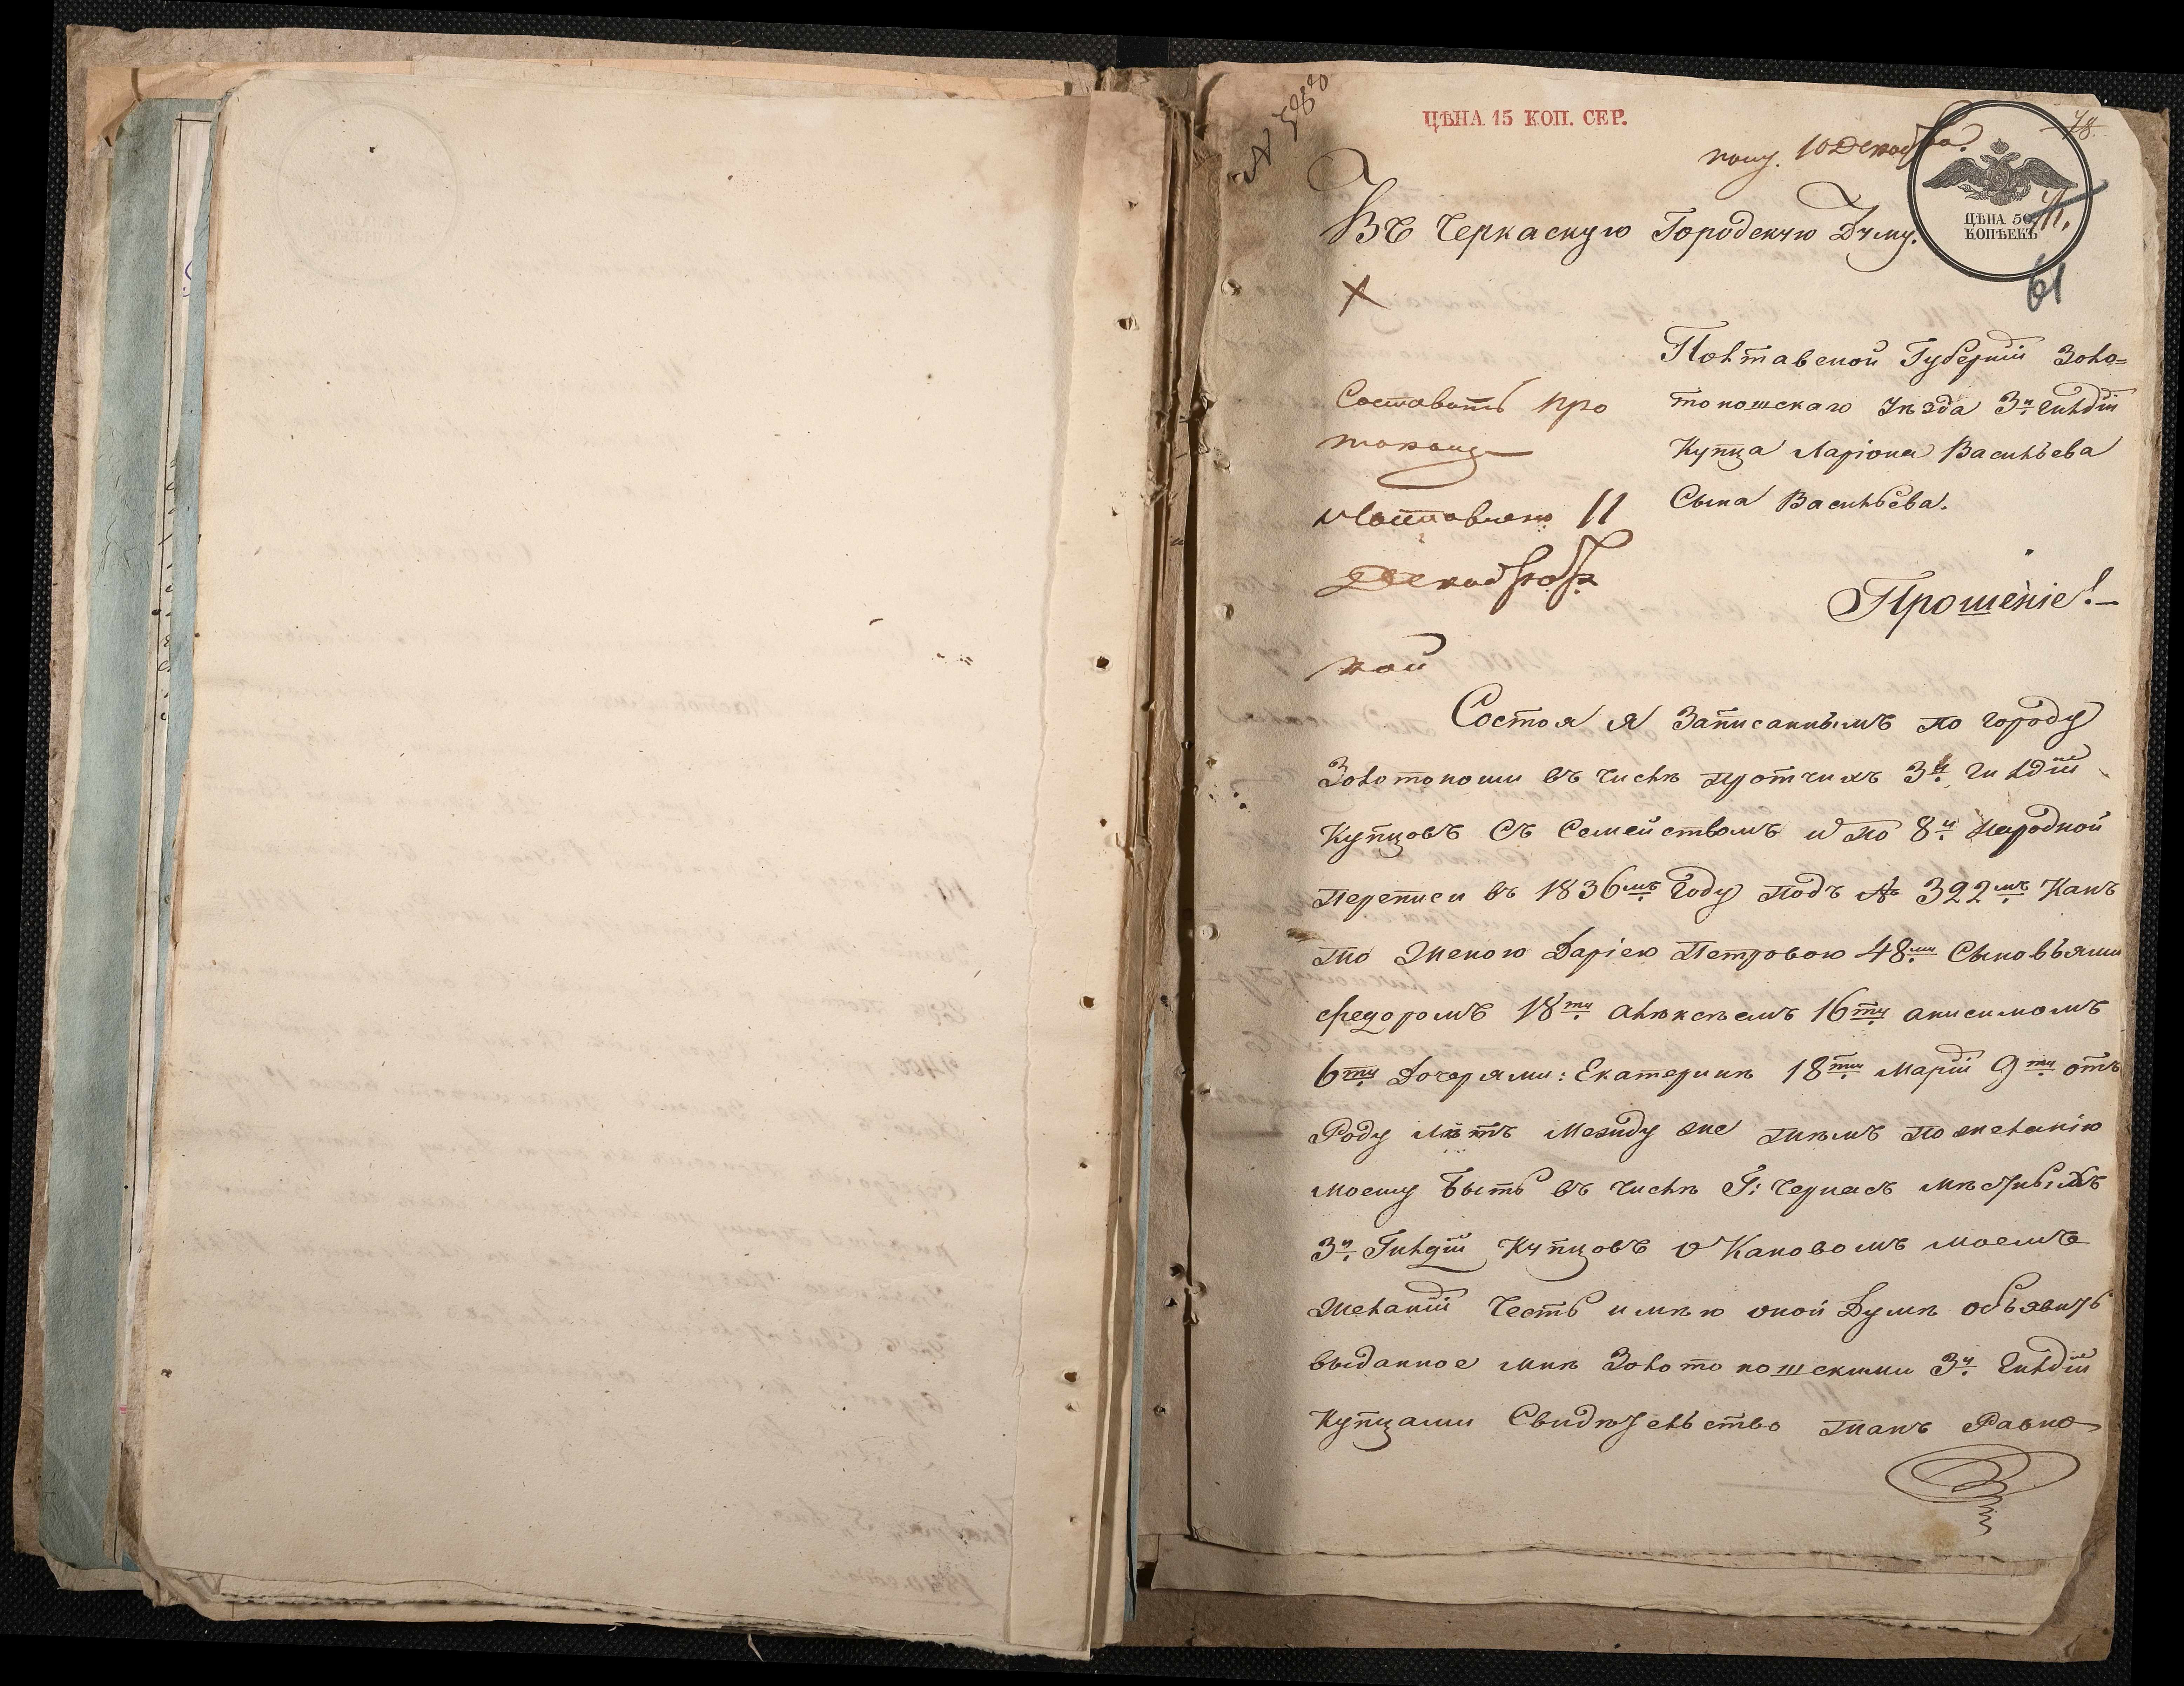 ЦѢНА 15 КОП. СЕР.
полу. 10 Декабра
78.
ЦѢНА 50
КОПѢЕКЪ
61
Въ Черкаскую Городскую Думу.
Полтавской Губерніи Золо=
тоношскаго Уѣзда 3й гилдіи
Купца Ларіона Васильева
Сына Васильева.
Составить про
токолъ
Составлено 11
Декабря
Прошеніе!
Состоя я Записаннымъ по городу
Золотоноши въ числѣ протчихъ 3й гилдіи
Купцовъ Съ Семействомъ и по 8й народной
переписи въ 1836мъ Году подъ № 322мъ Какъ
то Женою Даріею Петровою 48ми Сыновъями
Федоромъ 18ти алѣксѣемъ 16ти анисимомъ
6ти Дочерями: Екатеринѣ 18ти Маріи 9ти отъ
Роду лѣтъ Между же тѣмъ по желанію
моему быть въ числѣ Г: Черкасъ мѣстныхъ
3й Гилдіи Купцовъ о Каковомъ моемъ
Желаніи Честь имѣю оной Думѣ объявить
выданное мнѣ Золотоношскими 3й Гилдіи
Купцами Свидѣтельство такъ Равно